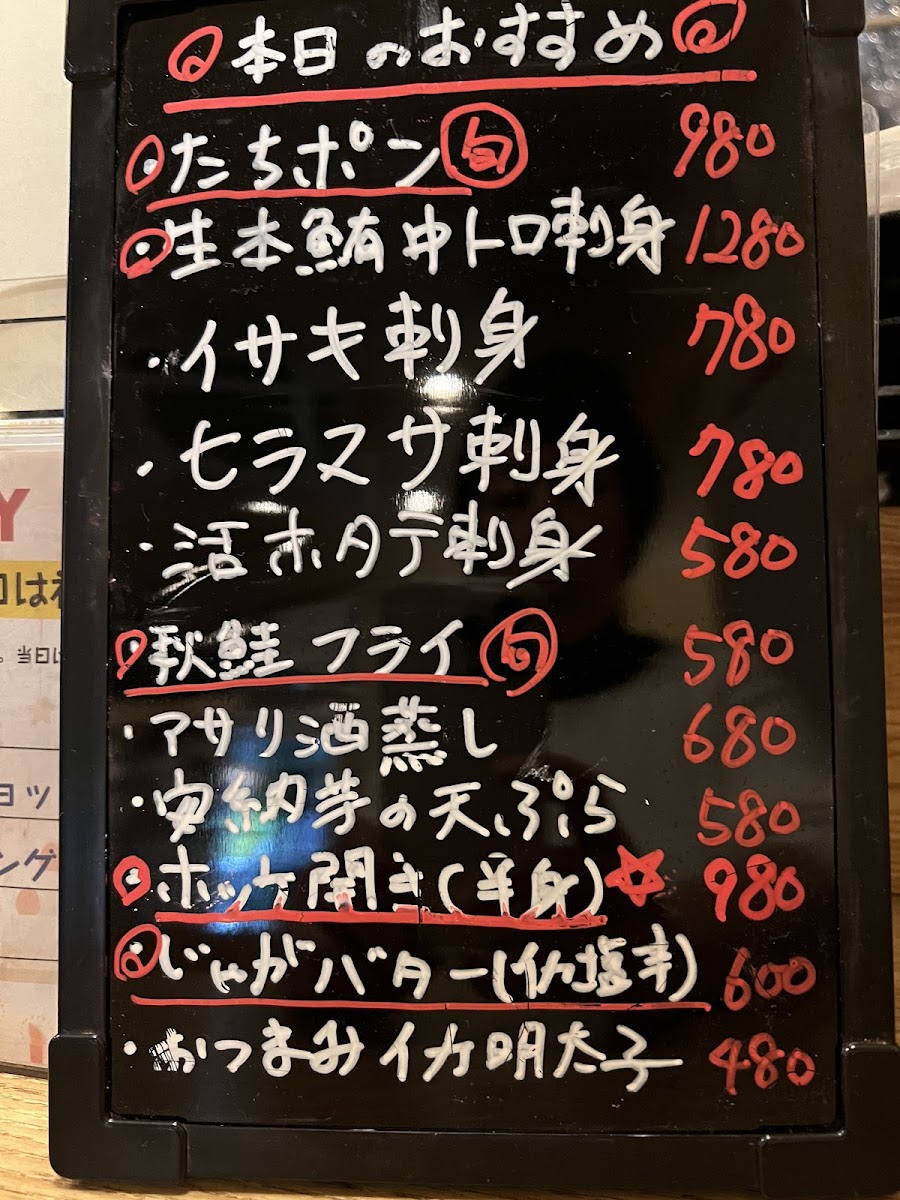 本日のおすすめ
たちポン 旬 980
生本鮪中トロ刺身 1280
・イサキ刺身 780
・ヒラスサ刺身 780
・活ホタテ刺身 580
秋鮭フライ 旬 580
・アサリ酒蒸し 680
・安納芋の天ぷら 580
ホッケ開き(半身)☆ 980
じゃがバター(イカ塩辛) 600
・おつまみイカ明太子 480
Y
は
。当日
ョッ
ング